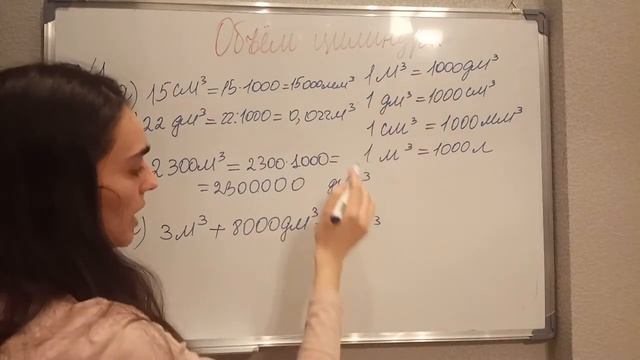 Объём цилиндра
15 см³ = 15·1000 = 15000мм³
22 дм³ = 22:1000 = 0,022м³
2300м³ = 2300·1000 =
= 2300000 дм³
3м³ + 8000дм³
1 м³ = 1000дм³
1 дм³ = 1000см³
1 см³ = 1000мм³
1 м³ = 1000л